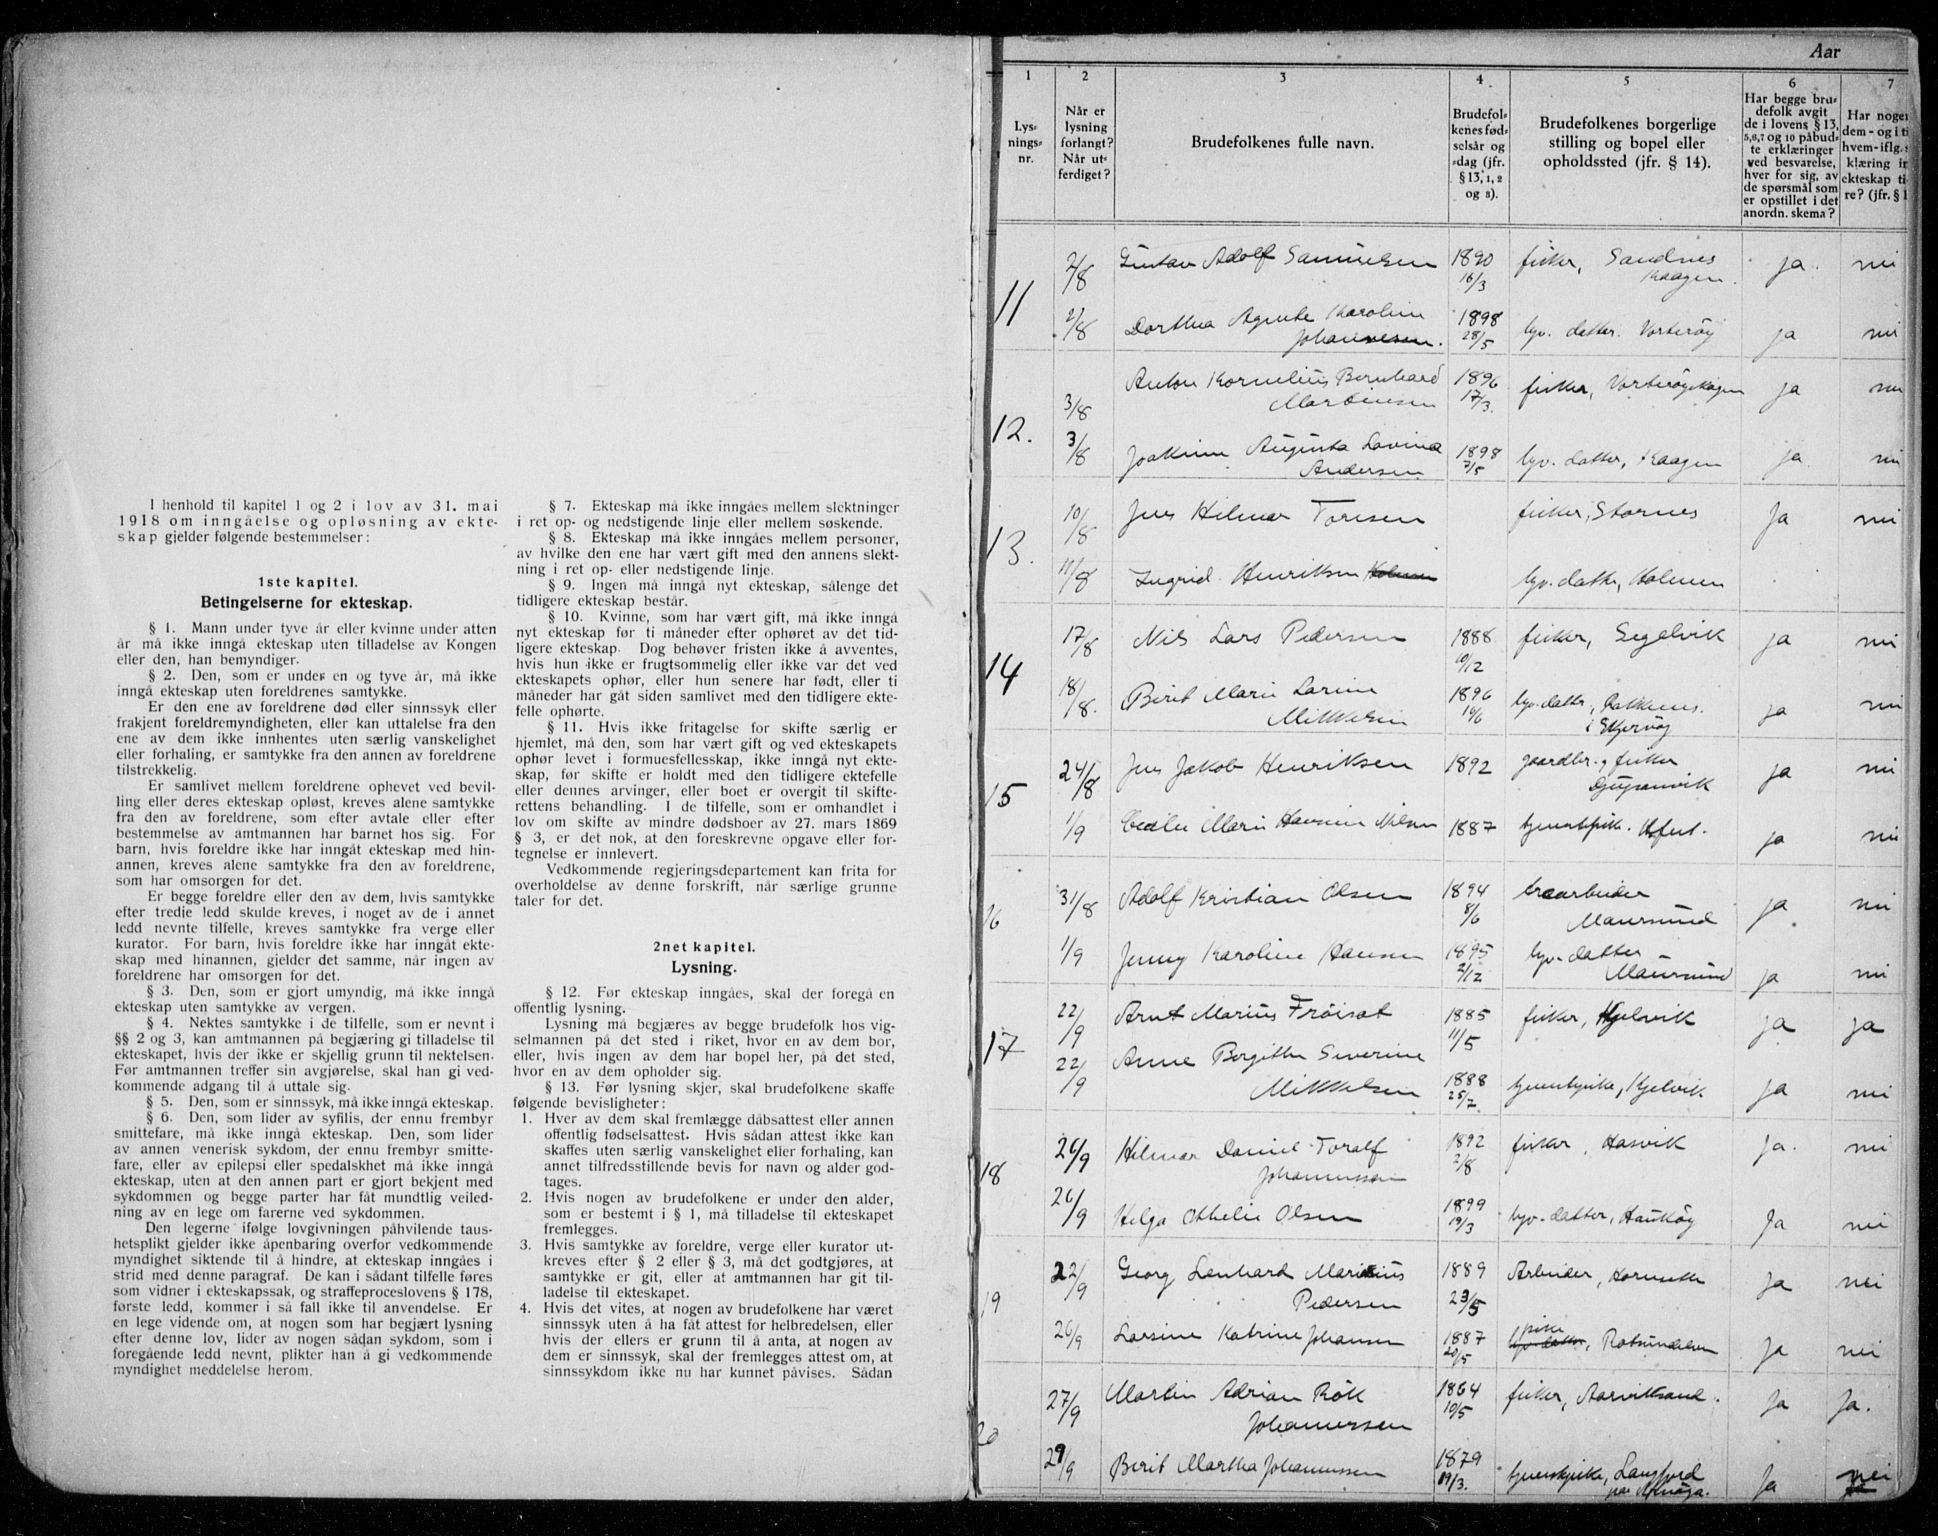 I henhold til kapitel 1 og 2 i lov av 31. mai
1918 om inngåelse og opløsning av ekte-
skap gjelder følgende bestemmelser:
1ste kapitel.
Betingelserne for ekteskap.
§ 1. Mann under tyve år eller kvinne under atten
år må ikke inngå ekteskap uten tilladelse av Kongen
eller den, han bemyndiger.
§ 2. Den, som er under en og tyve år, må ikke
inngå ekteskap uten foreldrenes samtykke.
Er den ene av foreldrene død eller sinnssyk eller
frakjent foreldremyndigheten, eller kan uttalelse fra den
ene av dem ikke innhentes uten særlig vanskelighet
eller forhaling, er samtykke fra den annen av foreldrene
tilstrekkelig.
Er samlivet mellem foreldrene ophevet ved bevil-
ling eller deres ekteskap opløst, kreves alene samtykke
fra den av foreldrene, som efter avtale eller efter
bestemmelse av amtmannen har barnet hos sig. For
barn, hvis foreldre ikke har inngåt ekteskap med hin-
annen, kreves alene samtykke fra den av foreldrene,
som har omsorgen for det.
Er begge foreldre eller den av dem, hvis samtykke
efter tredje ledd skulde kreves, i noget av de i annet
ledd nevnte tilfelle, kreves samtykke fra verge eller
kurator. For barn, hvis foreldre ikke har inngåt ekte-
skap med hinannen, gjelder det samme, når ingen av
foreldrene har omsorgen for det.
§ 3. Den, som er gjort umyndig, må ikke inngå
ekteskap uten samtykke av vergen.
§ 4. Nektes samtykke i de tilfelle, som er nevnt i
§§ 2 og 3, kan amtmannen på begjæring gi tilladelse til
ekteskapet, hvis der ikke er skjellig grunn til nektelsen.
Før amtmannen treffer sin avgjørelse, skal han gi ved-
kommende adgang til å uttale sig.
§ 5. Den, som er sinnssyk, må ikke inngå ekteskap.
§ 6. Den, som lider av syfilis, der ennu frembyr
smittefare, må ikke inngå ekteskap. Den, som lider
av annen venerisk sykdom, der ennu frembyr smitte-
fare, eller av epilepsi eller spedalskhet må ikke inngå
ekteskap, uten at den annen part er gjort bekjent med
sykdommen og begge parter har fåt mundtlig veiled-
ning av en lege om farerne ved sykdommen.
Den legerne ifølge lovgivningen påhvilende taus-
hetsplikt gjelder ikke åpenbaring overfor vedkommende
myndighet siktende til å hindre, at ekteskap inngåes i
strid med denne paragraf. De kan i sådant tilfelle føres
som vidner i ekteskapssak, og straffeproceslovens § 178,
første ledd, kommer i så fall ikke til anvendelse. Er
en lege vidende om, at nogen som har begjært lysning
efter denne lov, lider av nogen sådan sykdom, som i
foregående ledd nevnt, plikter han å gi vedkommende
myndighet meddelelse herom.
§ 7. Ekteskap må ikke inngåes mellem slektninger
i ret op- og nedstigende linje eller mellem søskende.
§ 8. Ekteskap må ikke inngåes mellem personer,
av hvilke den ene har vært gift med den annens slekt-
ning i ret op- eller nedstigende linje.
§ 9. Ingen må inngå nyt ekteskap, sålenge det
tidligere ekteskap består.
§ 10. Kvinne, som har vært gift, må ikke inngå
nyt ekteskap før ti måneder efter ophøret av det tid-
ligere ekteskap. Dog behøver fristen ikke å avventes,
hvis hun ikke er frugtsommelig eller ikke var det ved
ekteskapets ophør, eller hun senere har født, eller ti
måneder har gåt siden samlivet med den tidligere ekte-
felle ophørte.
§ 11. Hvis ikke fritagelse for skifte særlig er
hjemlet, må den, som har vært gift og ved ekteskapets
ophør levet i formuesfellesskap, ikke inngå nyt ekte-
skap, før skifte er holdt med den tidligere ektefelle
eller dennes arvinger, eller boet er overgit til skifte-
rettens behandling. I de tilfelle, som er omhandlet i
lov om skifte av mindre dødsboer av 27. mars 1869
§ 3, er det nok, at den foreskrevne opgave eller for-
tegnelse er innlevert.
Vedkommende regjeringsdepartement kan frita for
overholdelse av denne forskrift, når særlige grunne
taler for det.
2net kapitel.
Lysning.
§ 12. Før ekteskap inngåes, skal der foregå en
offentlig lysning.
Lysning må begjæres av begge brudefolk hos vig-
selmannen på det sted i riket, hvor en av dem bor,
eller, hvis ingen av dem har bopel her, på det sted,
hvor en av dem opholder sig.
§ 13. Før lysning skjer, skal brudefolkene skaffe
følgende bevisligheter:
1. Hver av dem skal fremlægge dåbsattest eller annen
offentlig fødselsattest. Hvis sådan attest ikke kan
skaffes uten særlig vanskelighet eller forhaling, kan
annet tilfredsstillende bevis for navn og alder god-
tages.
2. Hvis nogen av brudefolkene er under den alder,
som er bestemt i § 1, må tilladelse til ekteskapet
fremlegges.
3. Hvis samtykke av foreldre, verge eller kurator ut-
kreves efter § 2 eller § 3, må det godtgjøres, at
samtykke er git, eller at amtmannen har git til-
ladelse til ekteskapet.
4. Hvis det vites, at nogen av brudefolkene har været
sinnssyk uten å ha fåt attest for helbredelsen, eller
hvis der ellers er grunn til å anta, at nogen av
dem er sinnssyk, skal der fremlegges attest om, at
sinnssykdom ikke nu har kunnet påvises. Sådan
Aar
1 2 3 4 5 6 7
Lys-
nings-
nr.
Når er
lysning
forlangt?
Når ut-
ferdiget?
Brudefolkenes fulle navn.
Brudefol-
kenes fød-
selsår og
-dag (jfr.
§ 13, 1, 2
og 3).
Brudefolkenes borgerlige
stilling og bopel eller
opholdssted (jfr. § 14).
Har begge bru-
defolk avgit
de i lovens § 13,
5, 6, 7 og 10 påbud-
te erklæringer
ved besvarelse,
hver for sig, av
de spørsmål som
er opstillet i det
anordn. skema?
Har noge
dem - og i ti
hvem-iflg.
klæring i
ekteskap ti
re? (jfr. § 1
11 2/8 Gustav Adolf Samuelsen 1890 16/3 fisker, Sandnes Kaagen. ja. nei
2/8 Dorthea Agnete Karoline
Johannesen. 1898 28/5 hjv. datter. Vorterøy ja nei
12. 3/8 Anton Kornelius Bernhard
Martinsen 1896 17/3. fisker, Vorterøyskagen ja nei
3/8 Joakime Augusta Lovina
Andersen 1898 7/5 hjv. datter, Kaagen ja nei
13. 10/8 Jens Hilmar Toresen fisker, Stornes Ja nei
11/8 Ingrid Henriksen hjv. datter, Holmen
14 17/8 Nils Lars Pedersen 1888 10/12 fisker, Segelvik ja nei
18/8. Berit Marie Larine
Mikkelsen 1896 hjv. datter,
i Skjervøy ja nei
15 24/8 Jens Jakob Henriksen 1892 gaardbr. og fisker
Djupanvik ja nei
1/9 Marie Nilsen 1887 tjenestepike. ja nei
16 31/8 Adolf Kristian Olsen 1894 8/6
Maursund ja nei
1/9 Jenny Karoline Hansen 1895 2/12 hjv. datter
Maursund ja nei
17 22/9 Arnt Marius Frøiset 1885 11/5 fisker, Kjelvik ja ja
22/9 Anne Bergitte Severine
Mikkelsen 1888 25/7 tjenestepike, Kjelvik ja nei
18 26/9 Hilmar Daniel Toralf
Johannessen 1892 2/8 fisker, Hasvik Ja. nei
26/9 Helga Othelie Olsen 1899 19/3 hjv. datter, Haukøy Ja nei
19 22/9 Georg Lenhard Marius
Pedersen 1889 23/5 Arbeider, Ja nei
26/9 Larsine Katrine Johansen 1887 20/5 pike
hjv. datter, Rotsundelven Ja nei
20 27/9 Martin Adrian Røk
Johannessen 1864 10/5 fisker, Aarviksand. Ja Ja.
29/9 Berit Martha Johannessen 1879 19/3. tjenestepike, Langfjord
paa Arnøya. Ja nei